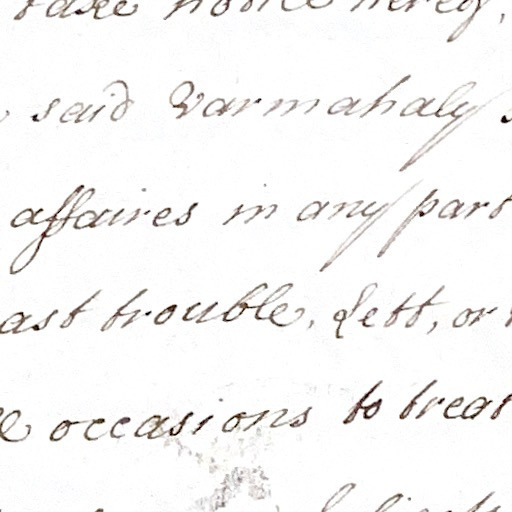 take notice hereof,
said Varmahaly
affaires in any part
ast trouble, Lett, or
occasions to treat